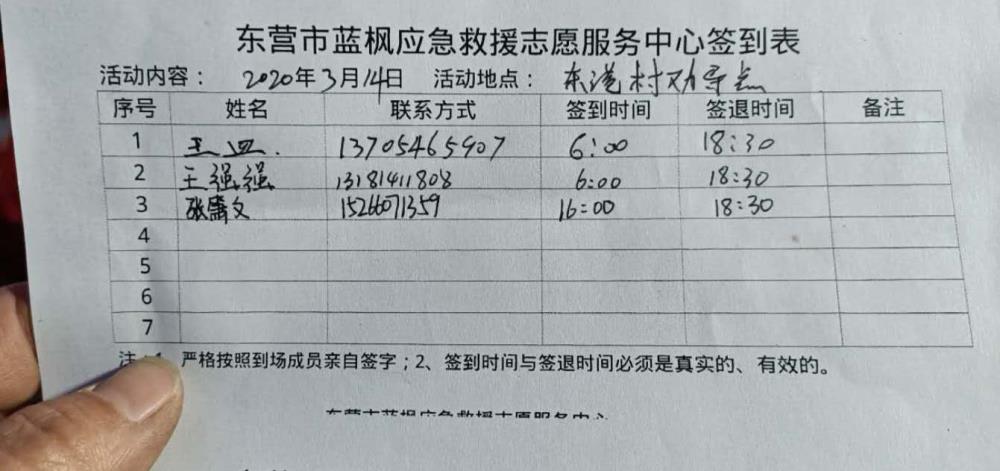 东营市蓝枫应急救援志愿服务中心签到表
活动内容： 2020年3月14日 活动地点： 东港村劝导点
序号 姓名 联系方式 签到时间 签退时间 备注
1 王 13705465907 6:00 18:30
2 王强强 13181411808 6:00 18:30
3 张 文 15266071359 16:00 18:30
4
5
6
7
注 1 严格按照到场成员亲自签字；2、签到时间与签退时间必须是真实的、有效的。
东营市蓝枫应急救援志愿服务中心